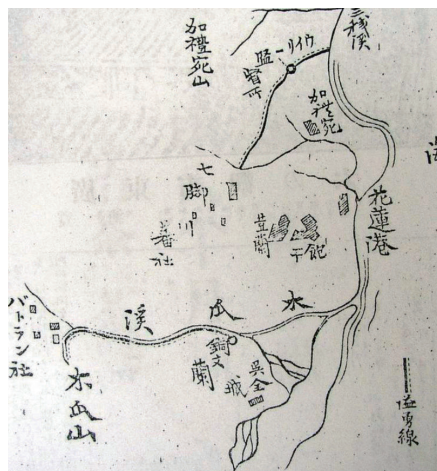 三棧溪
加禮宛山
ウイリー
監督所
加禮宛
七脚川
蕃社
荳蘭
飽干
花蓮港
海
木瓜溪
銅文蘭
吳全城
バトラン社
木瓜山
隘勇線